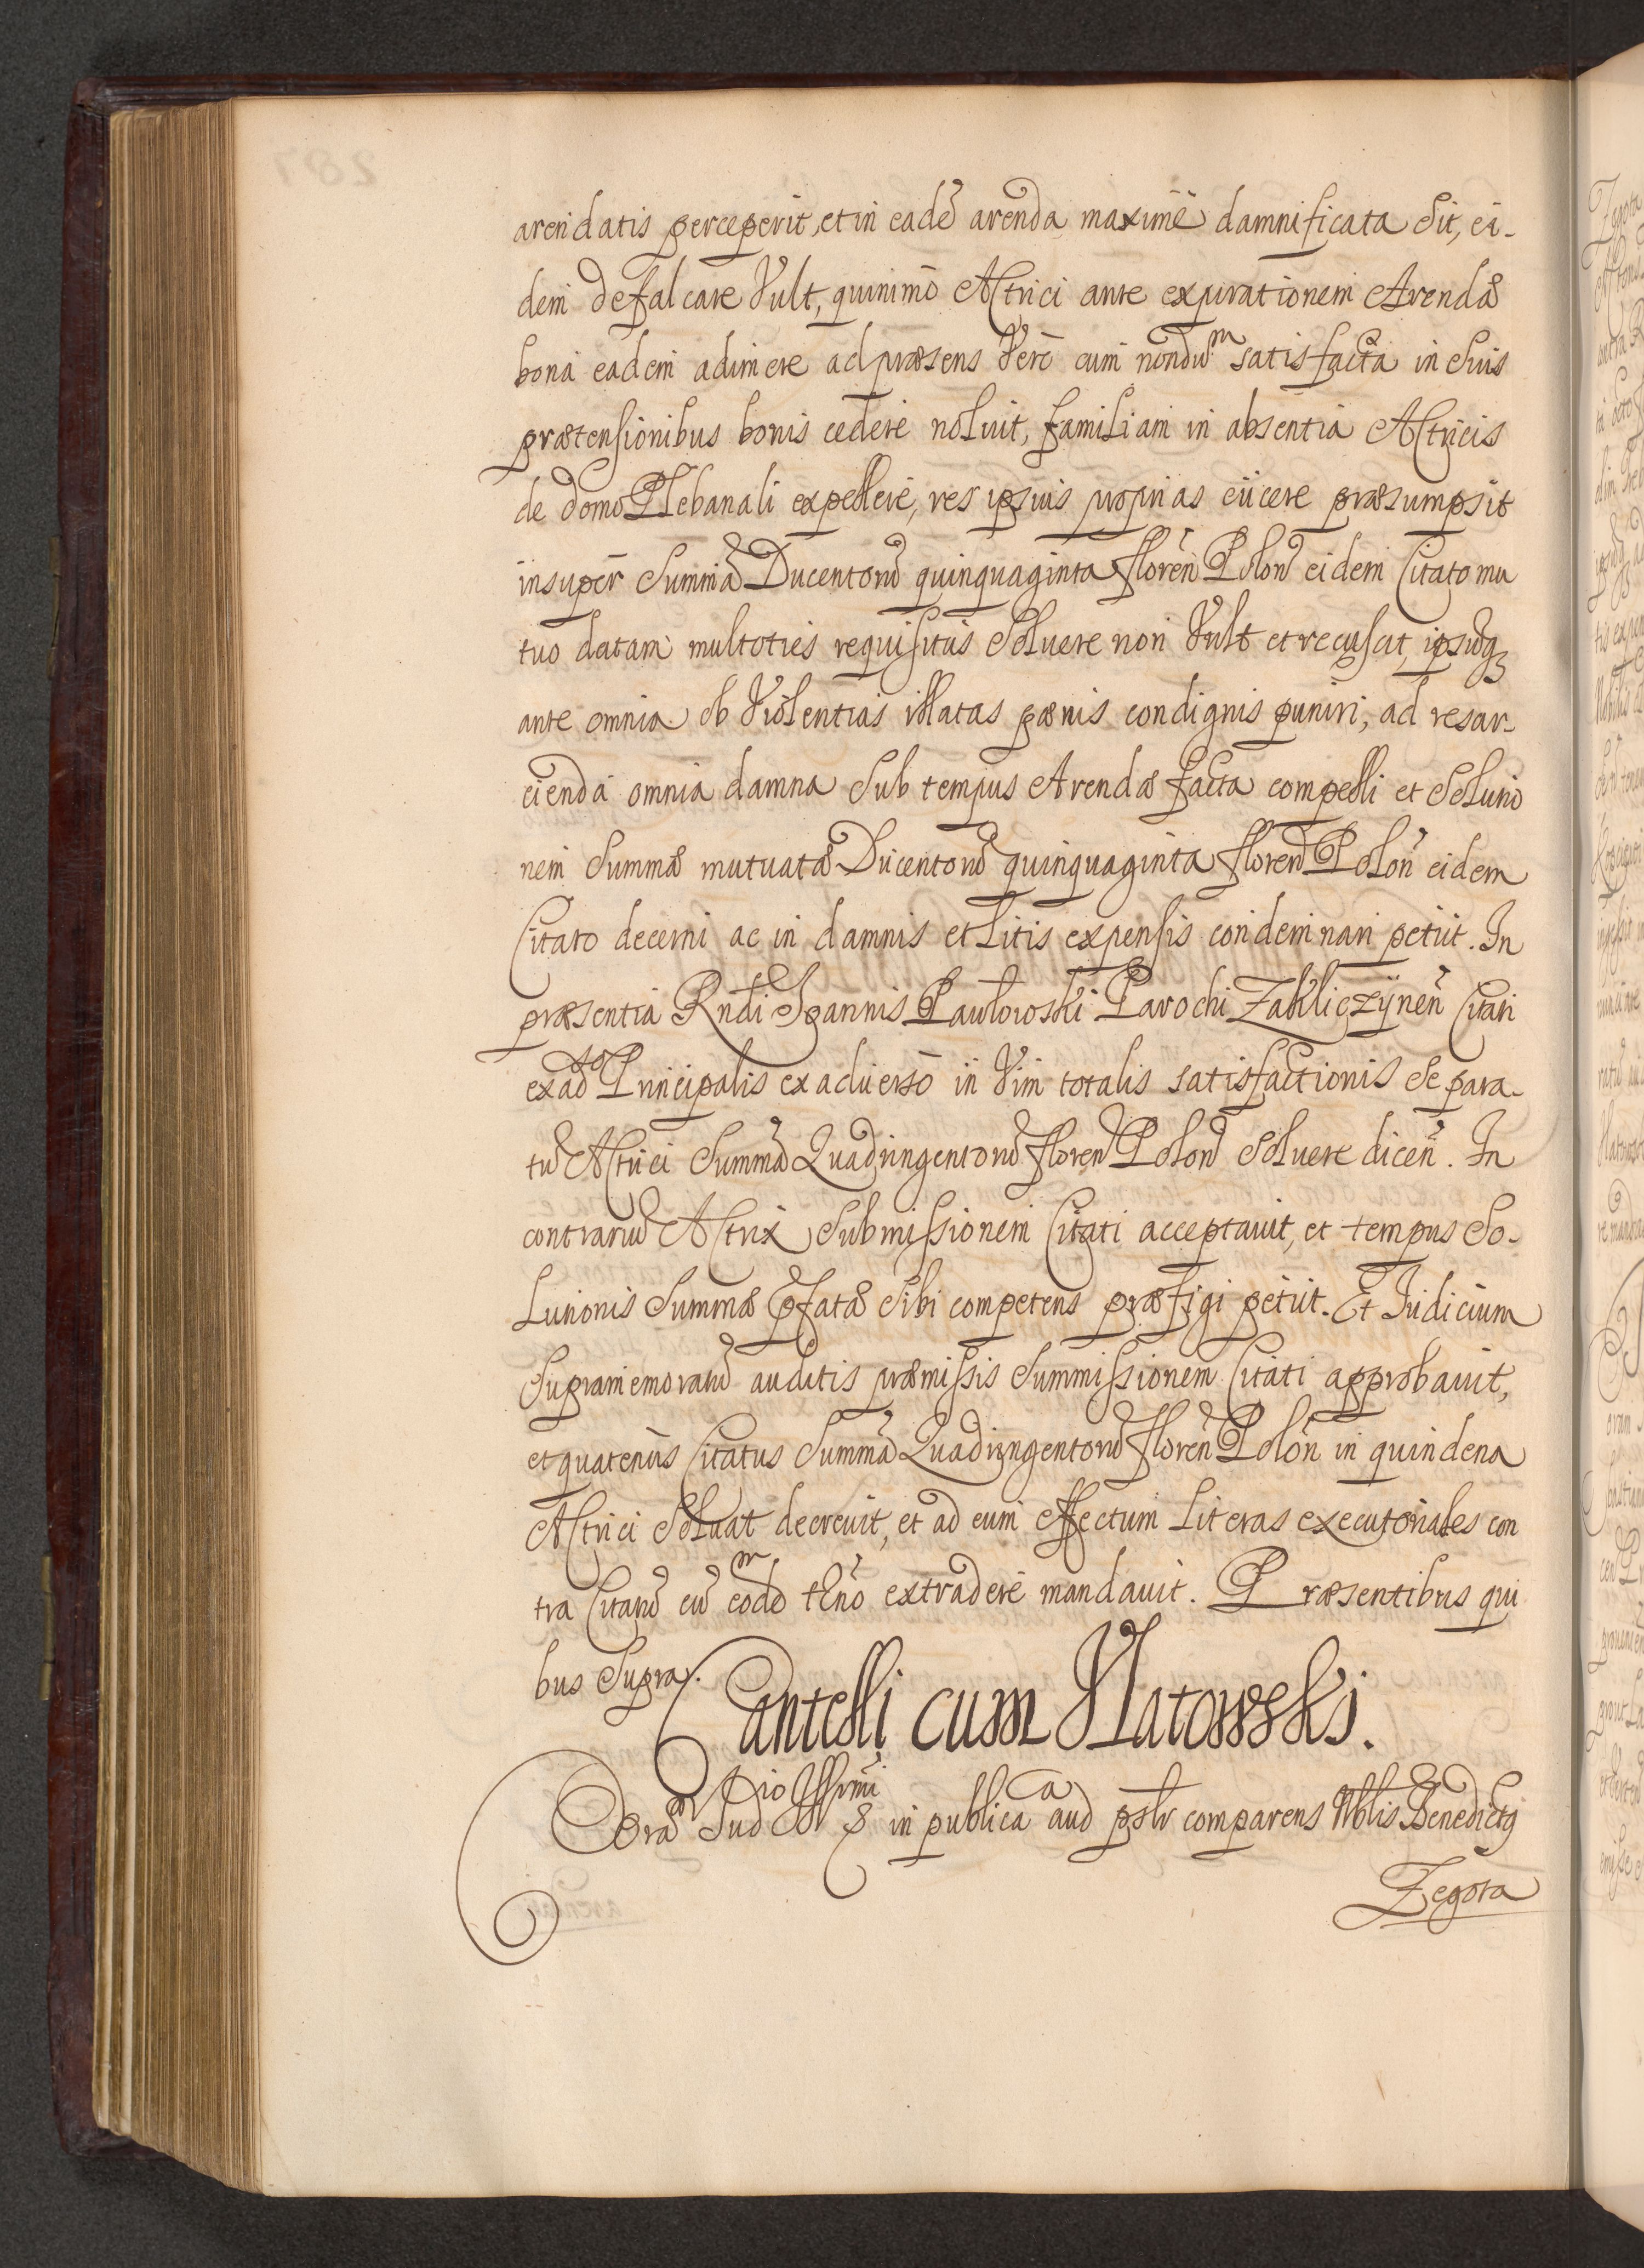 arendatis perceperit, et in eadē arenda maximē damnificata sit, ei-
dem defalcare Vult, quinimō Actrici ante expirationem Arendæ
bona eadem adimere ad præsens Verō cum nondūm satisfacta in suis
prætensionibus bonis cedere noluit, familiam in absentia Actricis
de domo Plebanali expellere, res ipsius proprias eiicere præsumpsit
insuper Summā Ducentorū quinquaginta floren Polon eidem Citato mu
tuo datam multoties requisitus Soluere non Vult et recusat, ipsūq
ante omnia ob Violentias illatas pænis condignis puniri, ad resar-
cienda omnia damna Sub tempus Arendæ facta compelli et Solutio
nem Summæ mutuatæ Ducentorū quinquaginta floren Polon eidem
Citato decerni ac in damnis et Litis expensis condemnari petiit. In
præsentia Rndi Joannis Pawłowski Parochi Zakliczÿnen Citati
ex ad Principalis ex aduerso in Vim totalis satisfactionis Se para-
tū Actrici Summā Quadringentorū floren Polon Soluere dicen. In
contrariū Actrix Submissionem Citati acceptauit, et tempus So-
Lutionis Summæ pfatæ Sibi competens præfigi petiit. Et Iudicium
Supramemoratū auditis præmissis Summissionem Citati approbauit,
et quatenus Citatus Summā Quadringentorū floren Polon in quindena
Actrici Soluat decreuit, et ad eum effectum Literas executoriales con
tra Citatū cū eodem tēno extradere mandauit. Præsentibus qui
bus Supra.
Cantelli cum Natowski.
Coram Iudio Illssmi & in publica auda pslr comparens Nblis Benedictq
Zegota